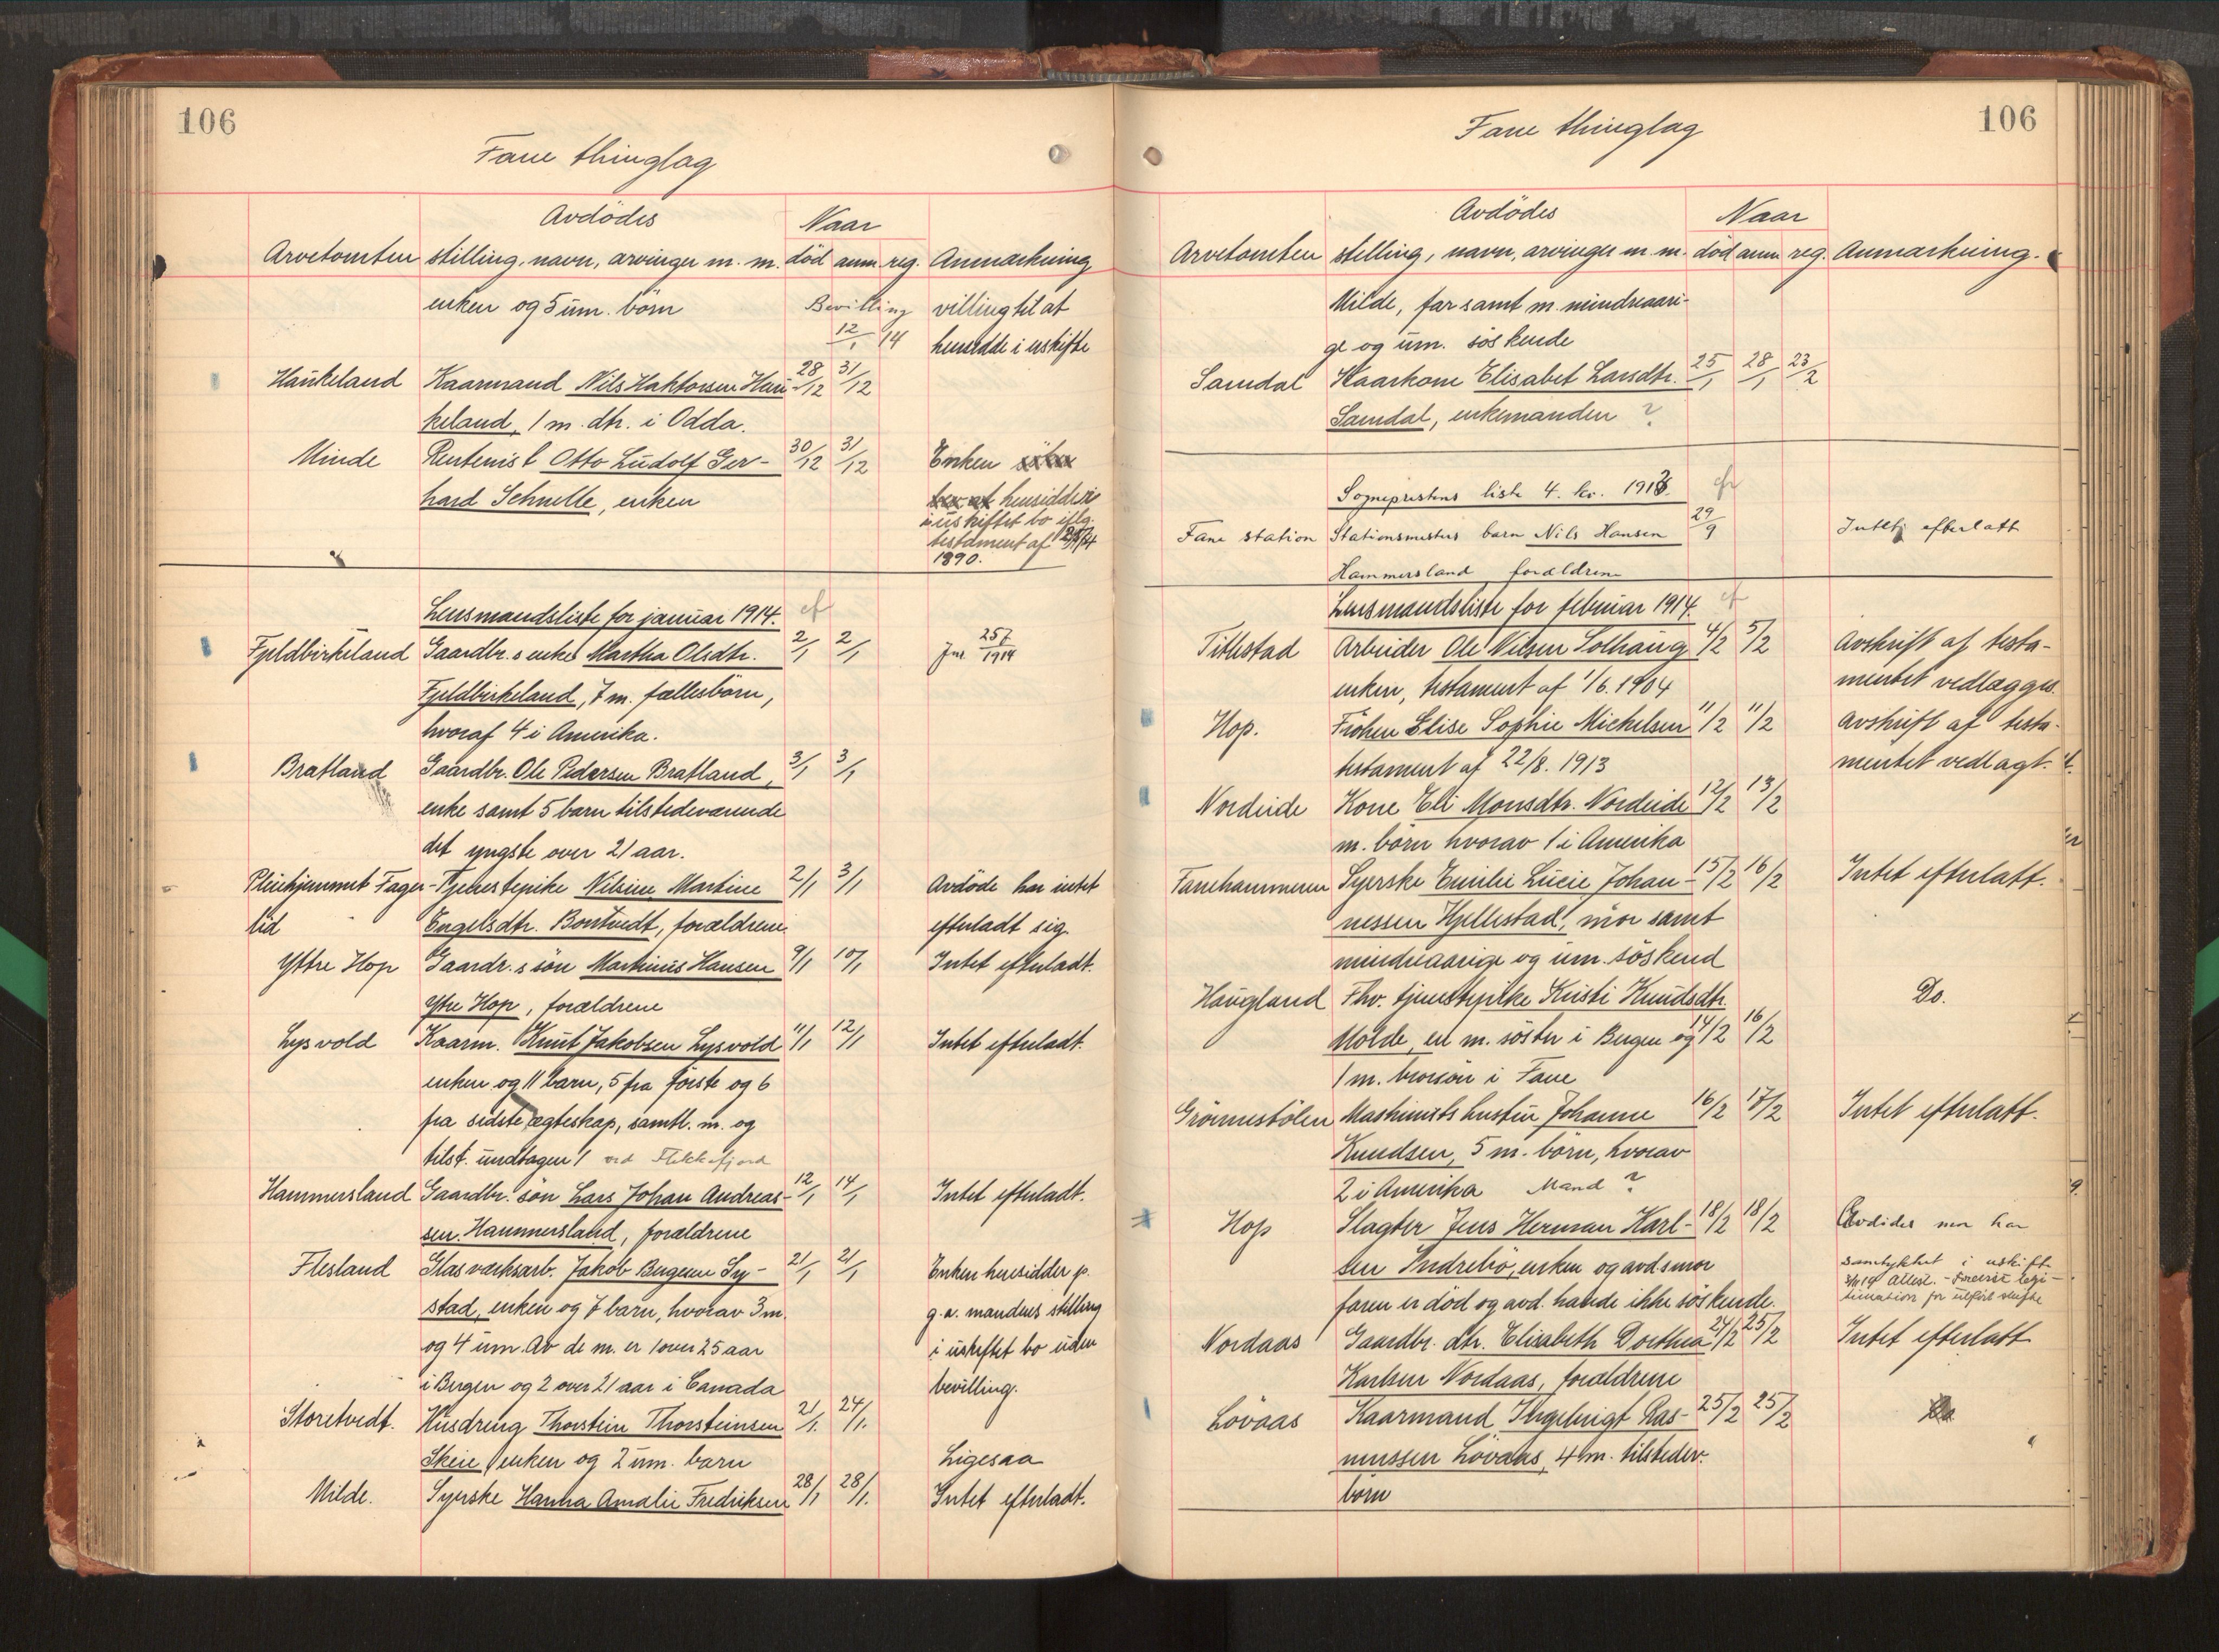 106
Fane thinglag
Avdödes
Naar
Arvetomten stilling, navn, arvinger m. m. död anm. reg. Anmærkning
enken og 5 um. börn Bevilling villing til at
12/1 14 hensidde i uskifte
Haukeland Kaarmand Nils Haktorsen Hau- 28/12 31/12
keland, 1 m. dtr. i Odda.
Minde Rentenist Otto Ludolf Ger- 30/12 31/12 Enken
hard Schnelle, enken hensidder
i uskiftet bo iflg.
testament af
1890.
Lensmandsliste for januar 1914. cf
Fjeldbirkeland Gaardbr.s enke Martha Olsdtr. 2/1 2/1 jnr 257/1914
Fjeldbirkeland, 7 m. fællesbörn,
hvoraf 4 i Amerika.
Bratland Gaardbr. Ole Pedersen Bratland, 3/1 3/1
enke samt 5 barn tilstedeværende
det yngste over 21 aar.
Pleiehjemmet Fager- Tjenestepike Nilsine Martine 2/1 3/1 Avdöde har intet
lid Engelsdtr. Bontvedt, forældrene. efterladt sig.
Ytre Hop Gaardr.s sön Martinus Hansen 9/1 10/1 Intet efterladt.
Ytre Hop, forældrene
Lysvold Kaarm. Knut Jakobsen Lysvold 11/1 12/1 Intet efterladt.
enken og 11 barn, 5 fra förste og 6
fra sidste ægteskap, samtl. m. og
tilst. undtagen 1 ved Flekkefjord
Hammersland Gaardbr. sön Lars Johan Andreas- 12/1 14/1 Intet efterladt.
sen Hammersland, forældrene
Flesland Glasværksarb. Jakob Bugesen Sy- 21/1 21/1 Enken hensidder p.
stad, enken og 7 barn, hvorav 3 m. g. a. mandens stilling
og 4 um. Av de m. er 1 over 25 aar i uskiftet bo uden
i Bergen og 2 over 21 aar i Canada bevilling.
Storetvedt. Husdreng Thorstein Thorsteinsen 21/1. 24/1.
Skeie, enken og 2 um. barn Ligesaa
Milde. Syerske Hanna Amalie Fredriksen 28/1 28/1. Intet efterladt.
106
Fane thinglag
Avdödes
Naar
Arvetomten stilling, navn, arvinger m. m. död anm. reg. Anmærkning.
Milde, far samt m. mindreaari-
ge og um. söskende
Samdal Kaarkone Elisabet Larsdtr. 25/1 28/1 23/2
Samdal, enkemanden ?
Sogneprestens liste 4. kv. 1913. cf
Fane station Stationsmesters barn Nils Hansen 29/9 Intet efterlatt
Hammersland forældrene
Lensmandsliste for februar 1914. cf
Titlestad Arbeider Ole Nilsen Solhaug 4/2 5/2 Avskrift af testa-
enken, testament af 1/6. 1904 mentet vedlægges.
Hop. Fröken Elise Sophie Michelsen 11/2 11/2 Avskrift af testa-
testament af 22/8. 1913 mentet vedlagt.
Nordeide Kone Eli Monsdtr. Nordeide 12/2 13/2
m. börn hvorav 1 i Amerika
Fanehammeren Syerske Emilie Lucie Johan- 15/2 16/2 Intet efterlatt.
nessen Hjellestad, mor samt
mindreaarige og um. söskend
Haugland Fhv. tjenestepike Kristi Knudsdtr. Do.
Molde, en m. söster i Bergen og 14/2 16/2
1 m. brorsön i Fane
Grönnestölen Maskinists hustru Johanne 16/2 17/2 Intet efterlatt.
Knudsen, 5 m. börn, hvorav
2 i Amerika Mand ?
Hop Slagter Jens Herman Karl- 18/2 18/2 Avdödes mor har
sen Indrebö, enken og avds mor samtykket i uskifte
faren er död og avd. havde ikke söskende.
Nordaas Gaardbr. dtr. Elisabeth Dorthea 24/2 25/2 Intet efterlatt
Karlsen Nordaas, forældrene
Lövaas Kaarmand Ingebrigt Ras- 25/2 25/2
mussen Lövaas, 4 m. tilstedev.
börn